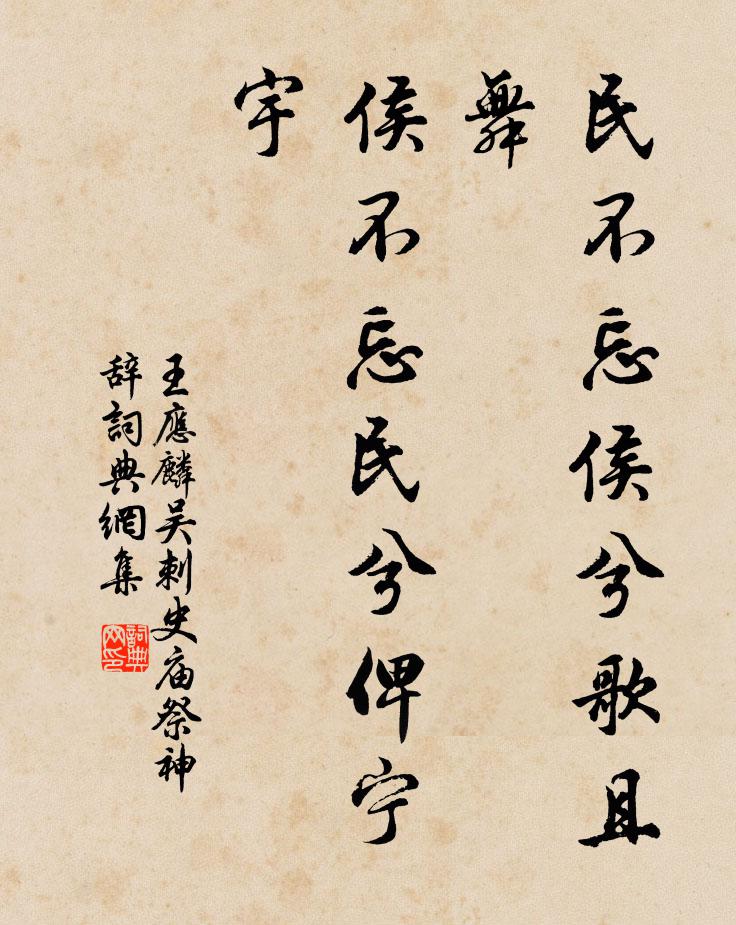 民不忘侯兮歌且
舞
侯不忘民兮俾宁
宇
王應麟吴刺史庙祭神
辞詞典網集
詞典
网印